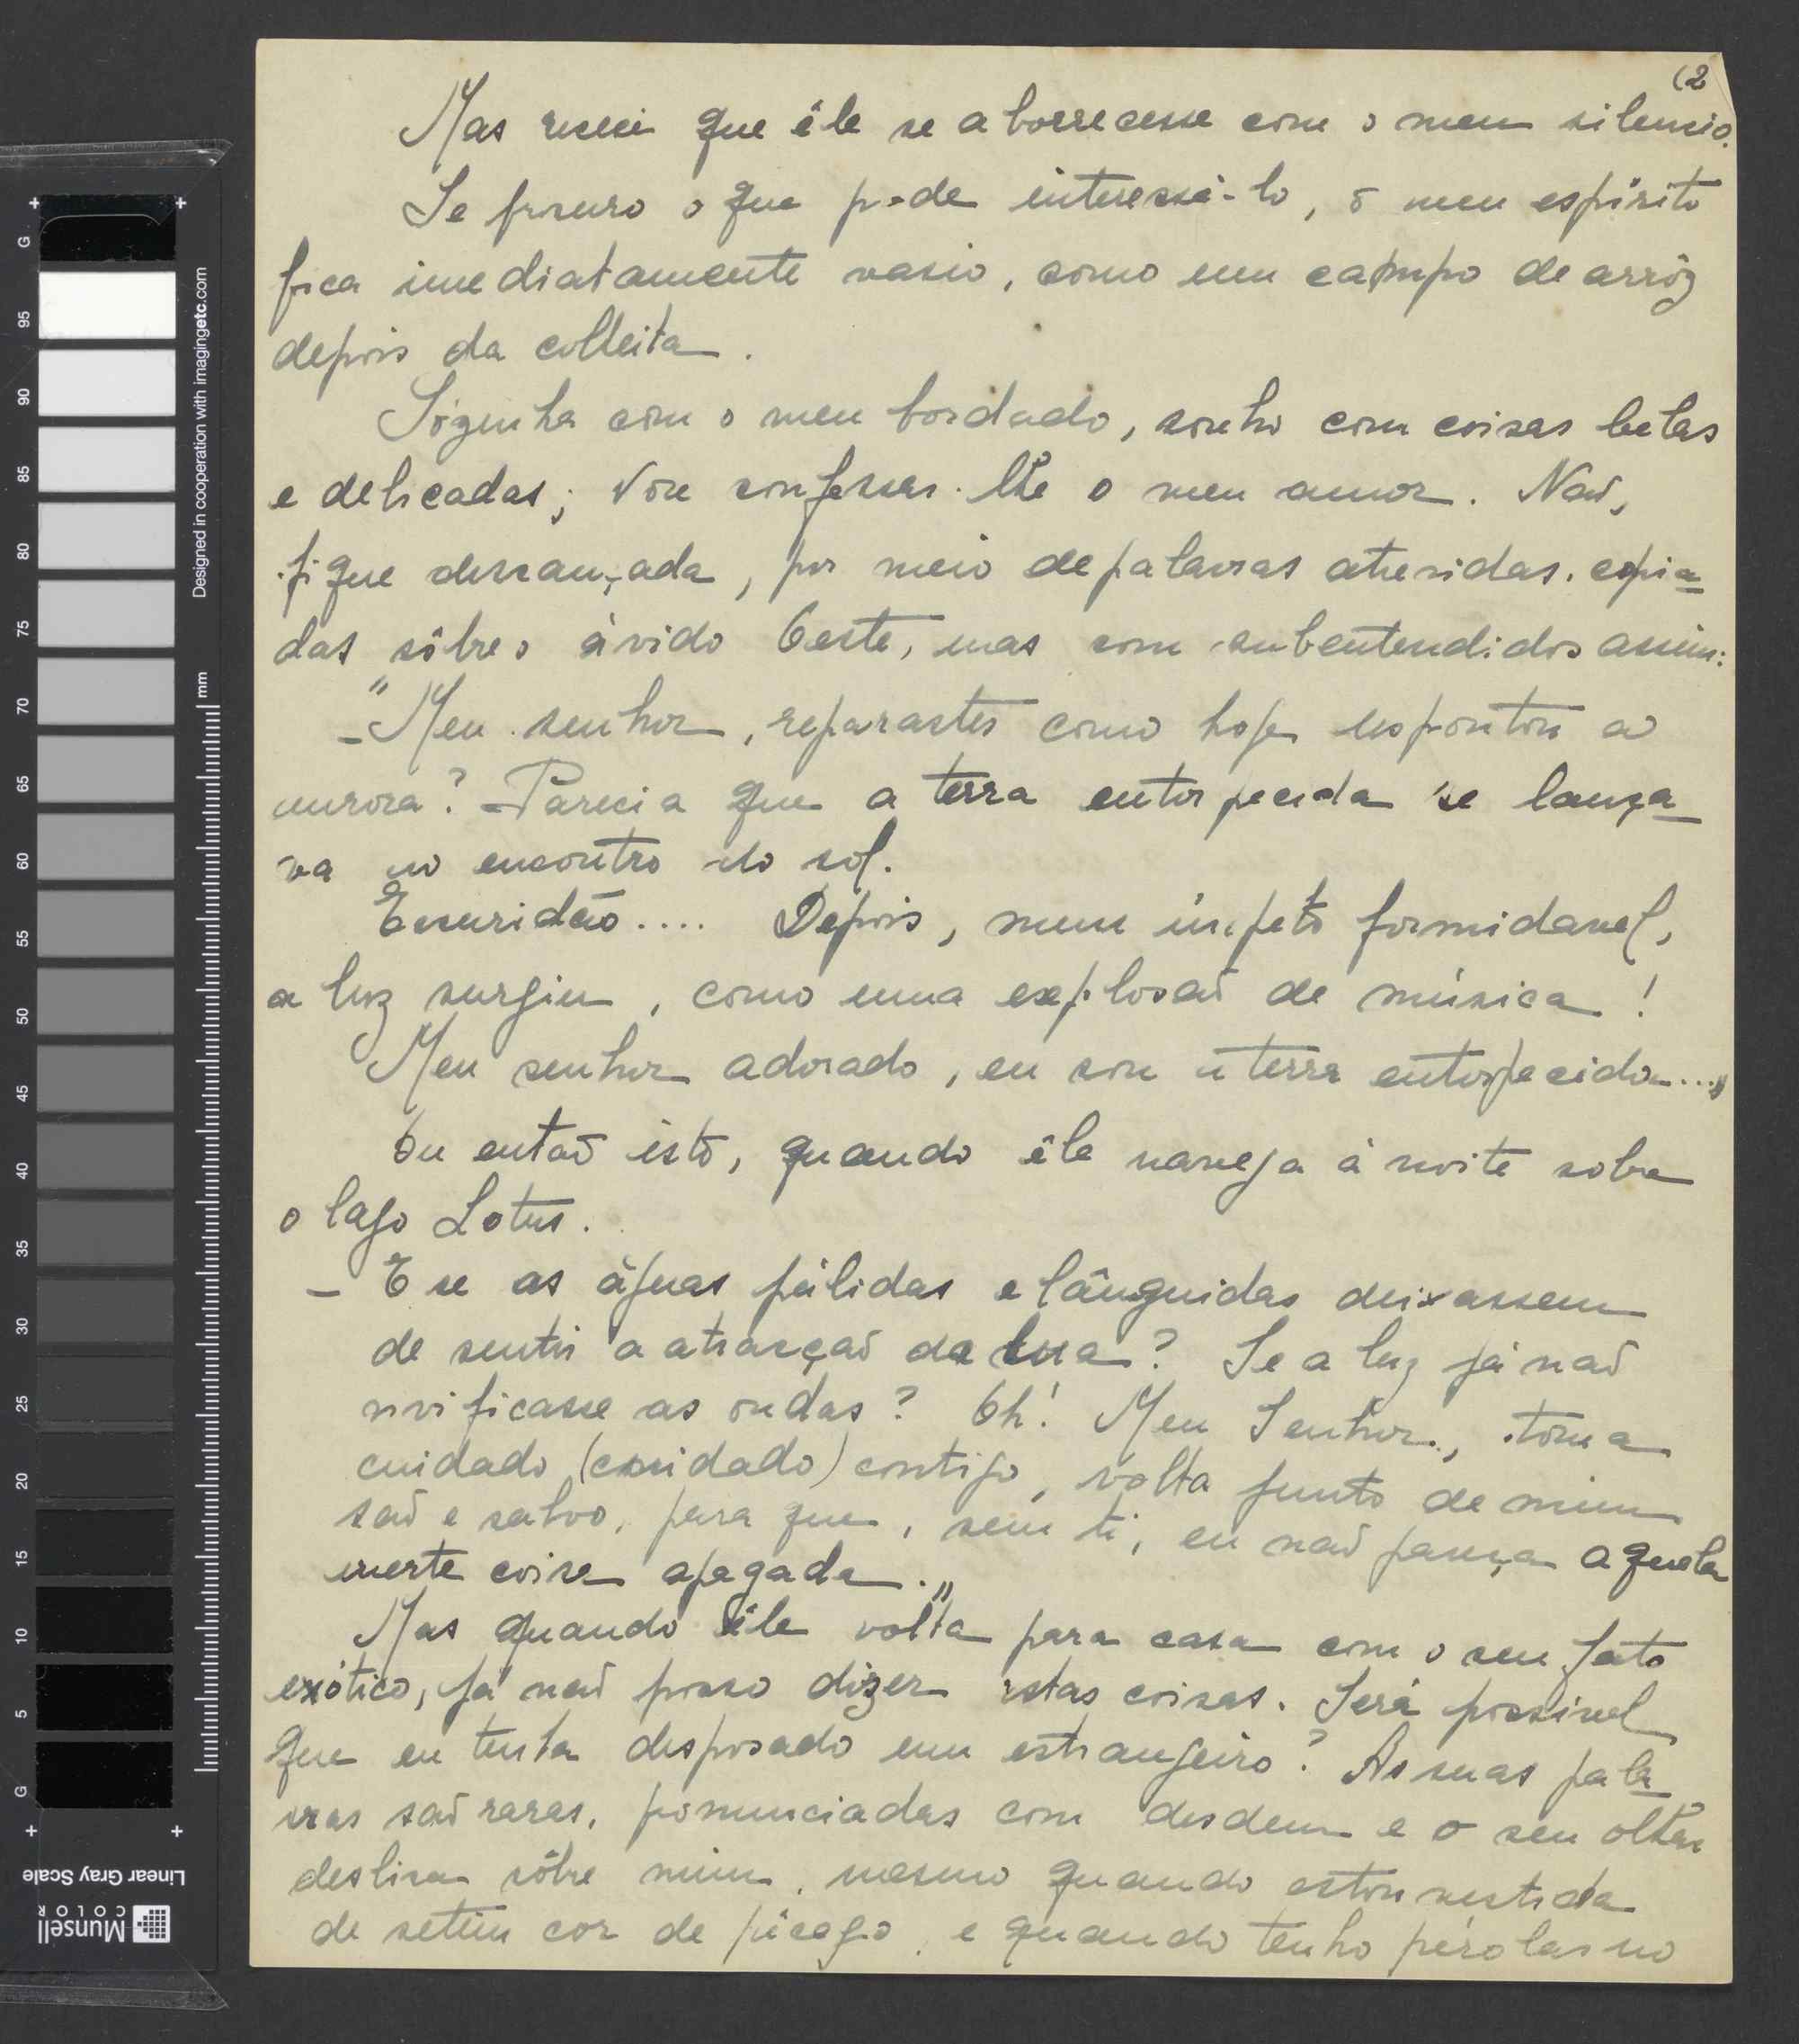 (2
Mas receei que êle se aborrecesse com o meu silencio.
Se procuro o que pode interessá-lo, o meu espírito
fica imediatamente vasio, como um campo de arrôz
depois da colheita.
Sózinha com o meu bordado, sonho com coisas belas
e delicadas; vou confessar-lhe o meu amor. Naõ,
fique descançada, por meio de palavras atrevidas, copia-
das sôbre o ávido Oeste, mas com subentendidos assim:
-"Meu senhor, reparastes como hoje despontou a
aurora? Parecia que a terra entorpecida se lança-
va ao encontro do sol.
Escuridão.... Depois, num ímpeto formidavel,
a luz surgiu, como uma explosaõ de música!
Meu senhor adorado, eu sou a terra entorpecida..."
Ou entaõ isto, quando êle navega à noite sobre
o lago Lotus.
- E se as águas pálidas e lânguidas deixassem
de sentir a atracçaõ da lua? Se a luz já naõ
vivificasse as ondas? Oh! Meu Senhor, toma
cuidado (cuidado) contigo, volta junto de mim
saõ e salvo, para que, sem ti, eu naõ pareça aquela
inerte coisa apagada."
Mas quando êle volta para casa com o seu fato
exótico, já naõ posso dizer estas coisas. Será possivel
que eu tenha desposado um estrangeiro? As suas pala-
vras saõ raras, pronunciadas com desdem e o seu olhar
deslisa sôbre mim, mesmo quando estou vestida
de setim cor de pêcego, e quando tenho pérolas no
Designed in cooperation with imagingetc.com
mm
G
95
90
85
80
75
70
65
60
55
50
45
40
35
30
25
20
15
10
5
G
Linear Gray Scale
Munsell
COLOR